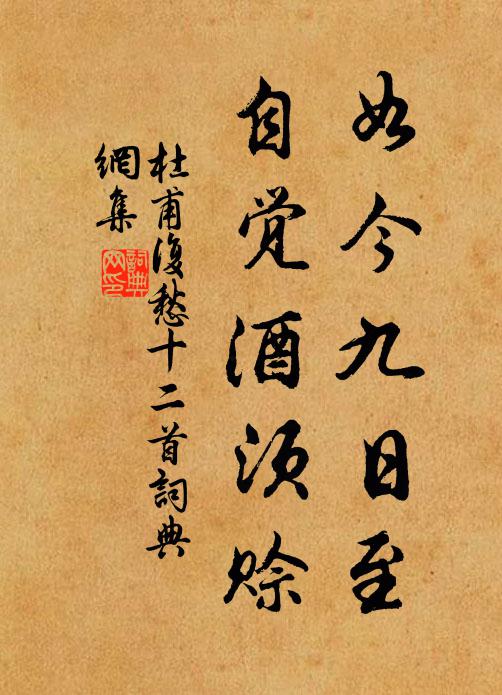 如今九日至
自觉酒须赊
杜甫復愁十二首詞典
網集
詞典
网印